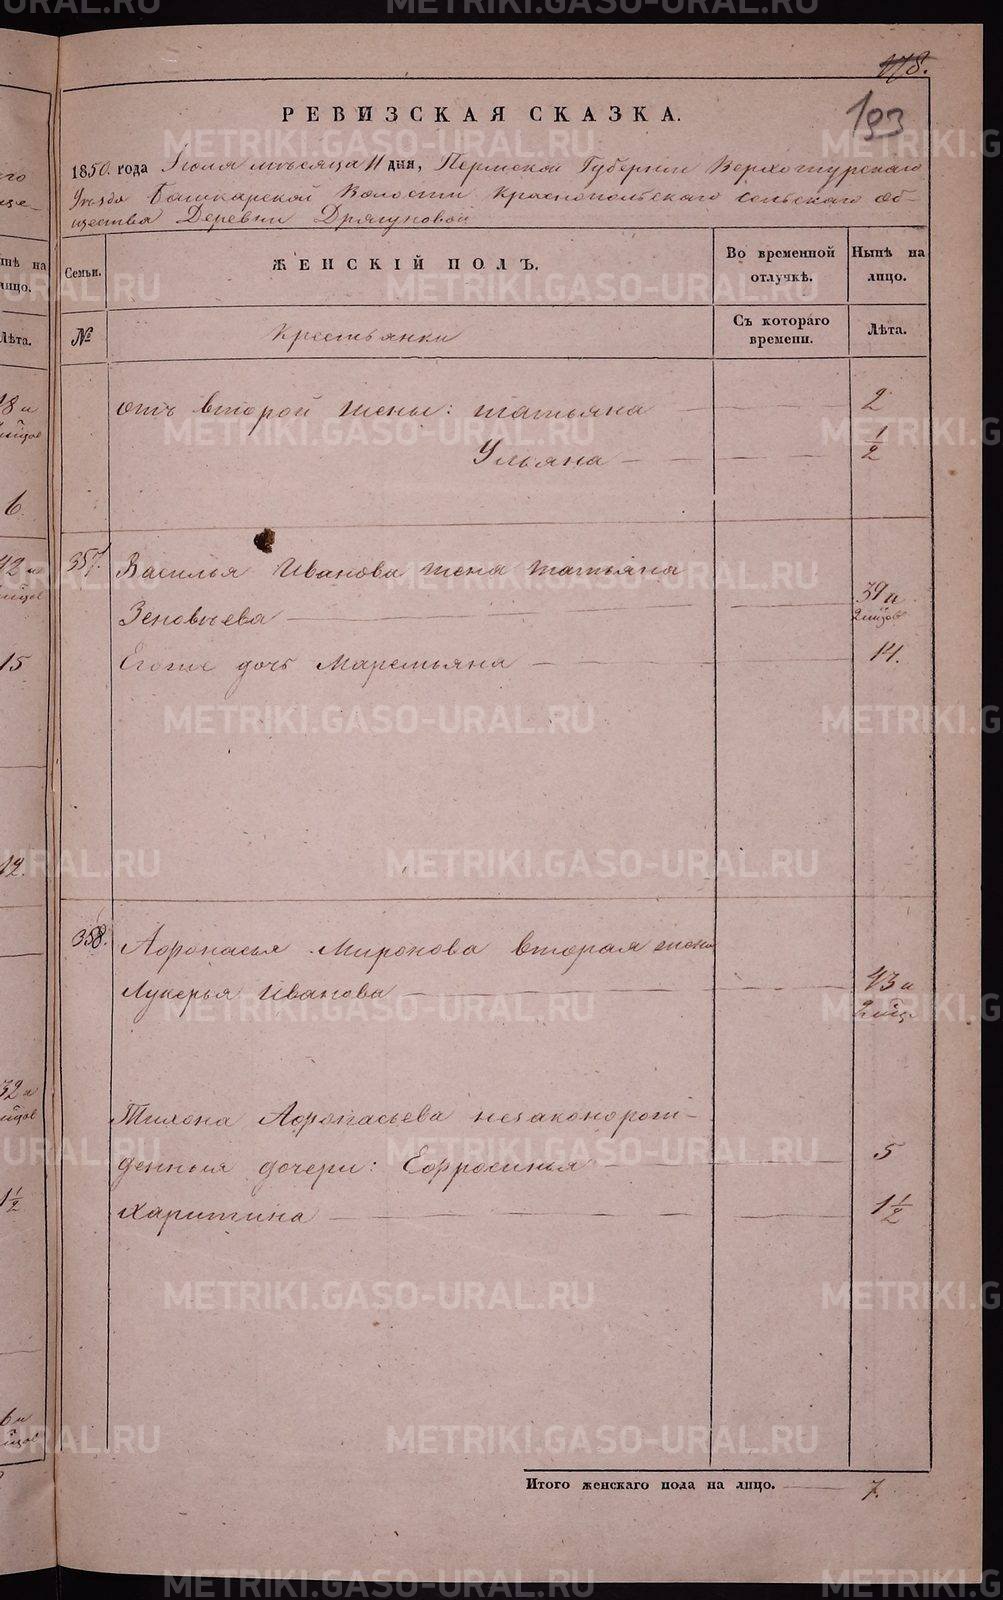 178.
193
РЕВИЗСКАЯ СКАЗКА.
1850. года Іюля мѣсяца 11 дня, Пермской Губерніи Верхотурскаго
Уѣзда Башкарской Волости Краснопольскаго сельскаго об-
щества Деревни Дрягуновой
Семьи. ЖЕНСКІЙ ПОЛЪ. Во временной отлучкѣ. Нынѣ на лицо.
№ Крестьянки Съ котораго времени. Лѣта.
отъ второй жены: татьяна 2
Ульяна 1/2
357. Василья Иванова жена татьяна
Зеновьева 39 и 2 мѣсцов
Егоже дочь Маремьяна 14.
358. Афонасья Миронова вторая жена
Лукерья Иванова 43 и
Тихона Афонасьева незаконорож-
денныя дочери: Ефросинья 5
Харитина 1 1/2
Итого женскаго пола на лицо. 7.
METRIKI.GASO-URAL.RU